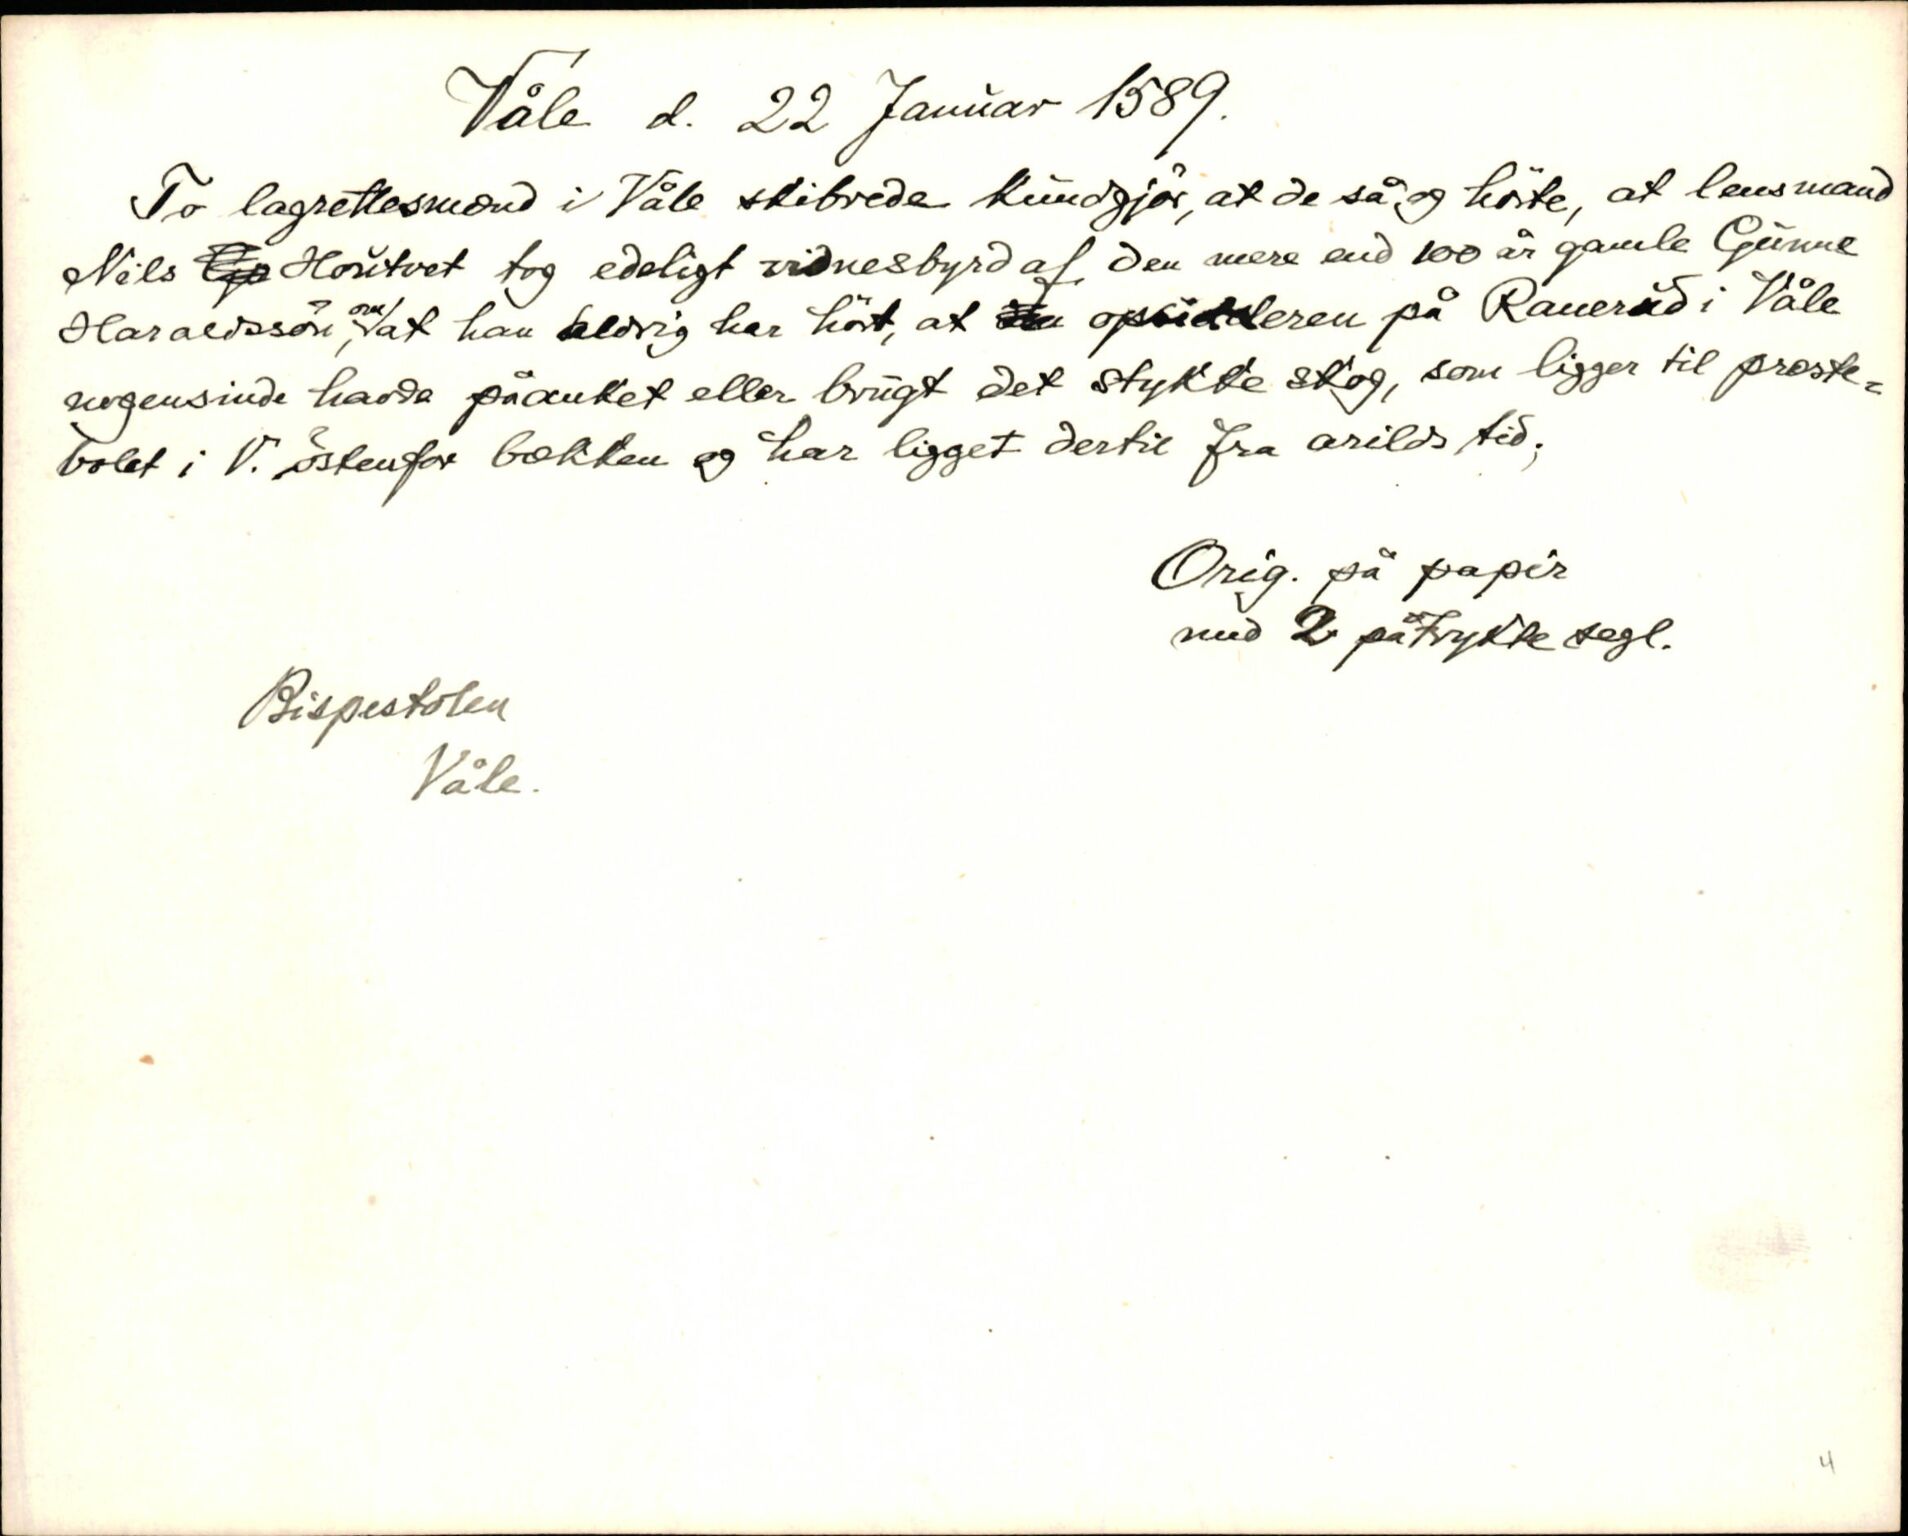 Våle d. 22 Januar 1589.
To lagrettesmænd i Våle skibrede kundgjör, at de så og hörte, at lensmand
Nils Houtvet tog edeligt vidnesbyrd af den mere end 100 år gamle Gunne
Haraldssön, om at han aldrig har hört, at opsidderen på Ranerud i Våle
nogensinde havde påanket eller brugt det stykke skog, som ligger til præste-
bolet i V. östenfor bækken og har ligget dertil fra arilds tid;
Orig. på papir
med 2 påtrykte segl.
Bispestolen
Våle.
4